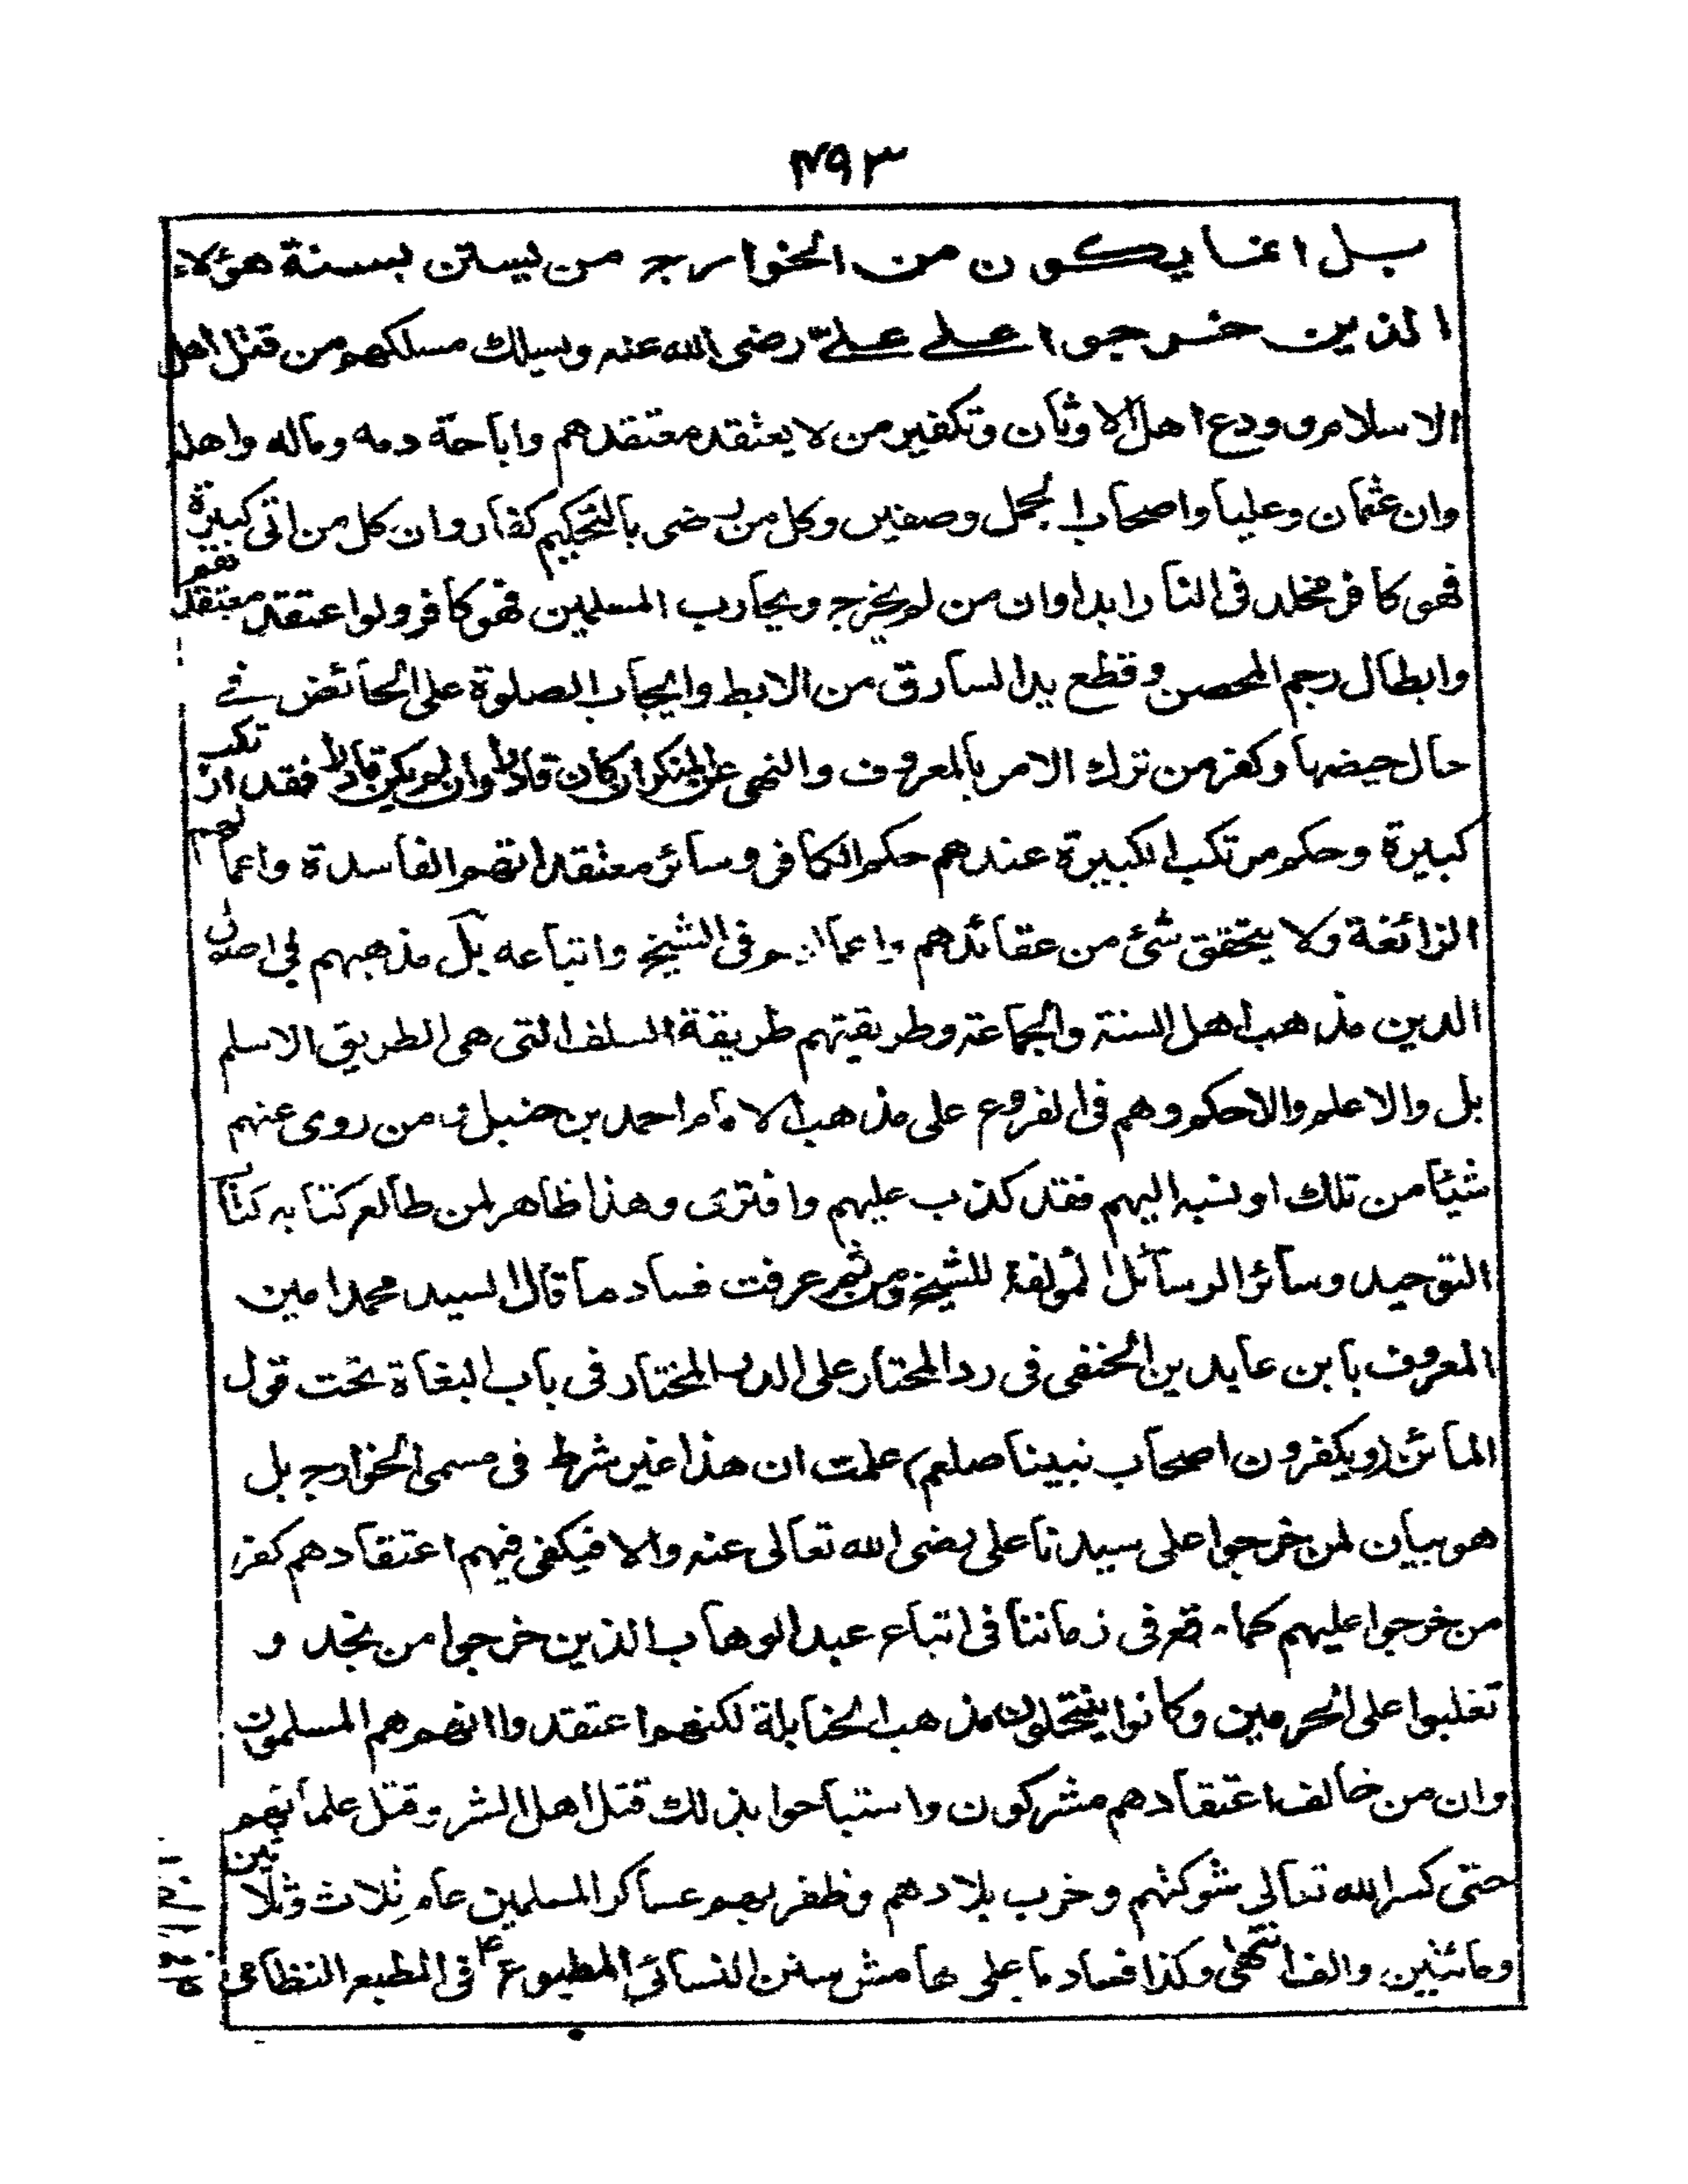 ۴۹۳
بل انما يكون من الخوارج من يستن بسنة هؤلاء
الذين خرجوا على عليّ رضى الله عنه ويسلك مسلكهم من قتل اهل
الاسلام وودع اهل الاوثان وتكفير من لا يعتقد معتقدهم واباحة دمه وماله واهله
وان عثمان وعليا واصحاب الجمل وصفين وكل من رضى بالتحكيم كفار وان كل من اتى كبيرة
فهو كافر مخلد فى النار ابدا وان من لم يخرج ويحارب المسلمين فهو كافر ولو اعتقد معتقدهم
وابطال رجم المحصن وقطع يد السارق من الابط وايجاب الصلوة على الحائض فے
حال حيضها وكفر من ترك الامر بالمعروف والنهى عن المنكر ان كان قادرا وان لم يكن قادرا فقد ارتكب
كبيرة وحكم مرتكب الكبيرة عندهم حكم الكافر وسائر معتقداتهم الفاسدة واعمالهم
الزائغة ولا يتحقق شئ من عقائدهم واعمالهم فى الشيخ واتباعه بل مذهبهم فى اصول
الدين مذهب اهل السنة والجماعة وطريقتهم طريقة السلف التى هى الطريق الاسلم
بل والاعلم والاحكم وهم فى الفروع على مذهب الامام احمد بن حنبل ومن روى عنهم
شيئا من تلك او نسبه اليهم فقد كذب عليهم وافترى وهذا ظاهر لمن طالع كتابه كتاب
التوحيد وسائر الرسائل المؤلفة للشيخ ومن ثم عرفت فساد ما قال السيد محمد امين
المعروف بابن عابدين الحنفى فى رد المحتار على الدر المختار فى باب البغاة تحت قول
الماتن (ويكفرون اصحاب نبينا صلعم) علمت ان هذا غير شرط فى مسمى الخوارج بل
هو بيان لمن خرجوا على سيدنا على رضى الله تعالى عنه والا فيكفى فيهم اعتقادهم كفر
من خرجوا عليهم كما وقع فى زماننا فى اتباع عبد الوهاب الذين خرجوا من نجد و
تغلبوا على الحرمين وكانوا ينتحلون مذهب الحنابلة لكنهم اعتقدوا انهم هم المسلمون
وان من خالف اعتقادهم مشركون واستباحوا بذلك قتل اهل السنة وقتل علمائهم
حتى كسر الله تعالى شوكتهم وخرب بلادهم وظفر بهم عساكر المسلمين عام ثلاث وثلاثين
ومائتين والف انتهى وكذا فساد ما على هامش سنن النسائى المطبوع فى المطبع النظامى